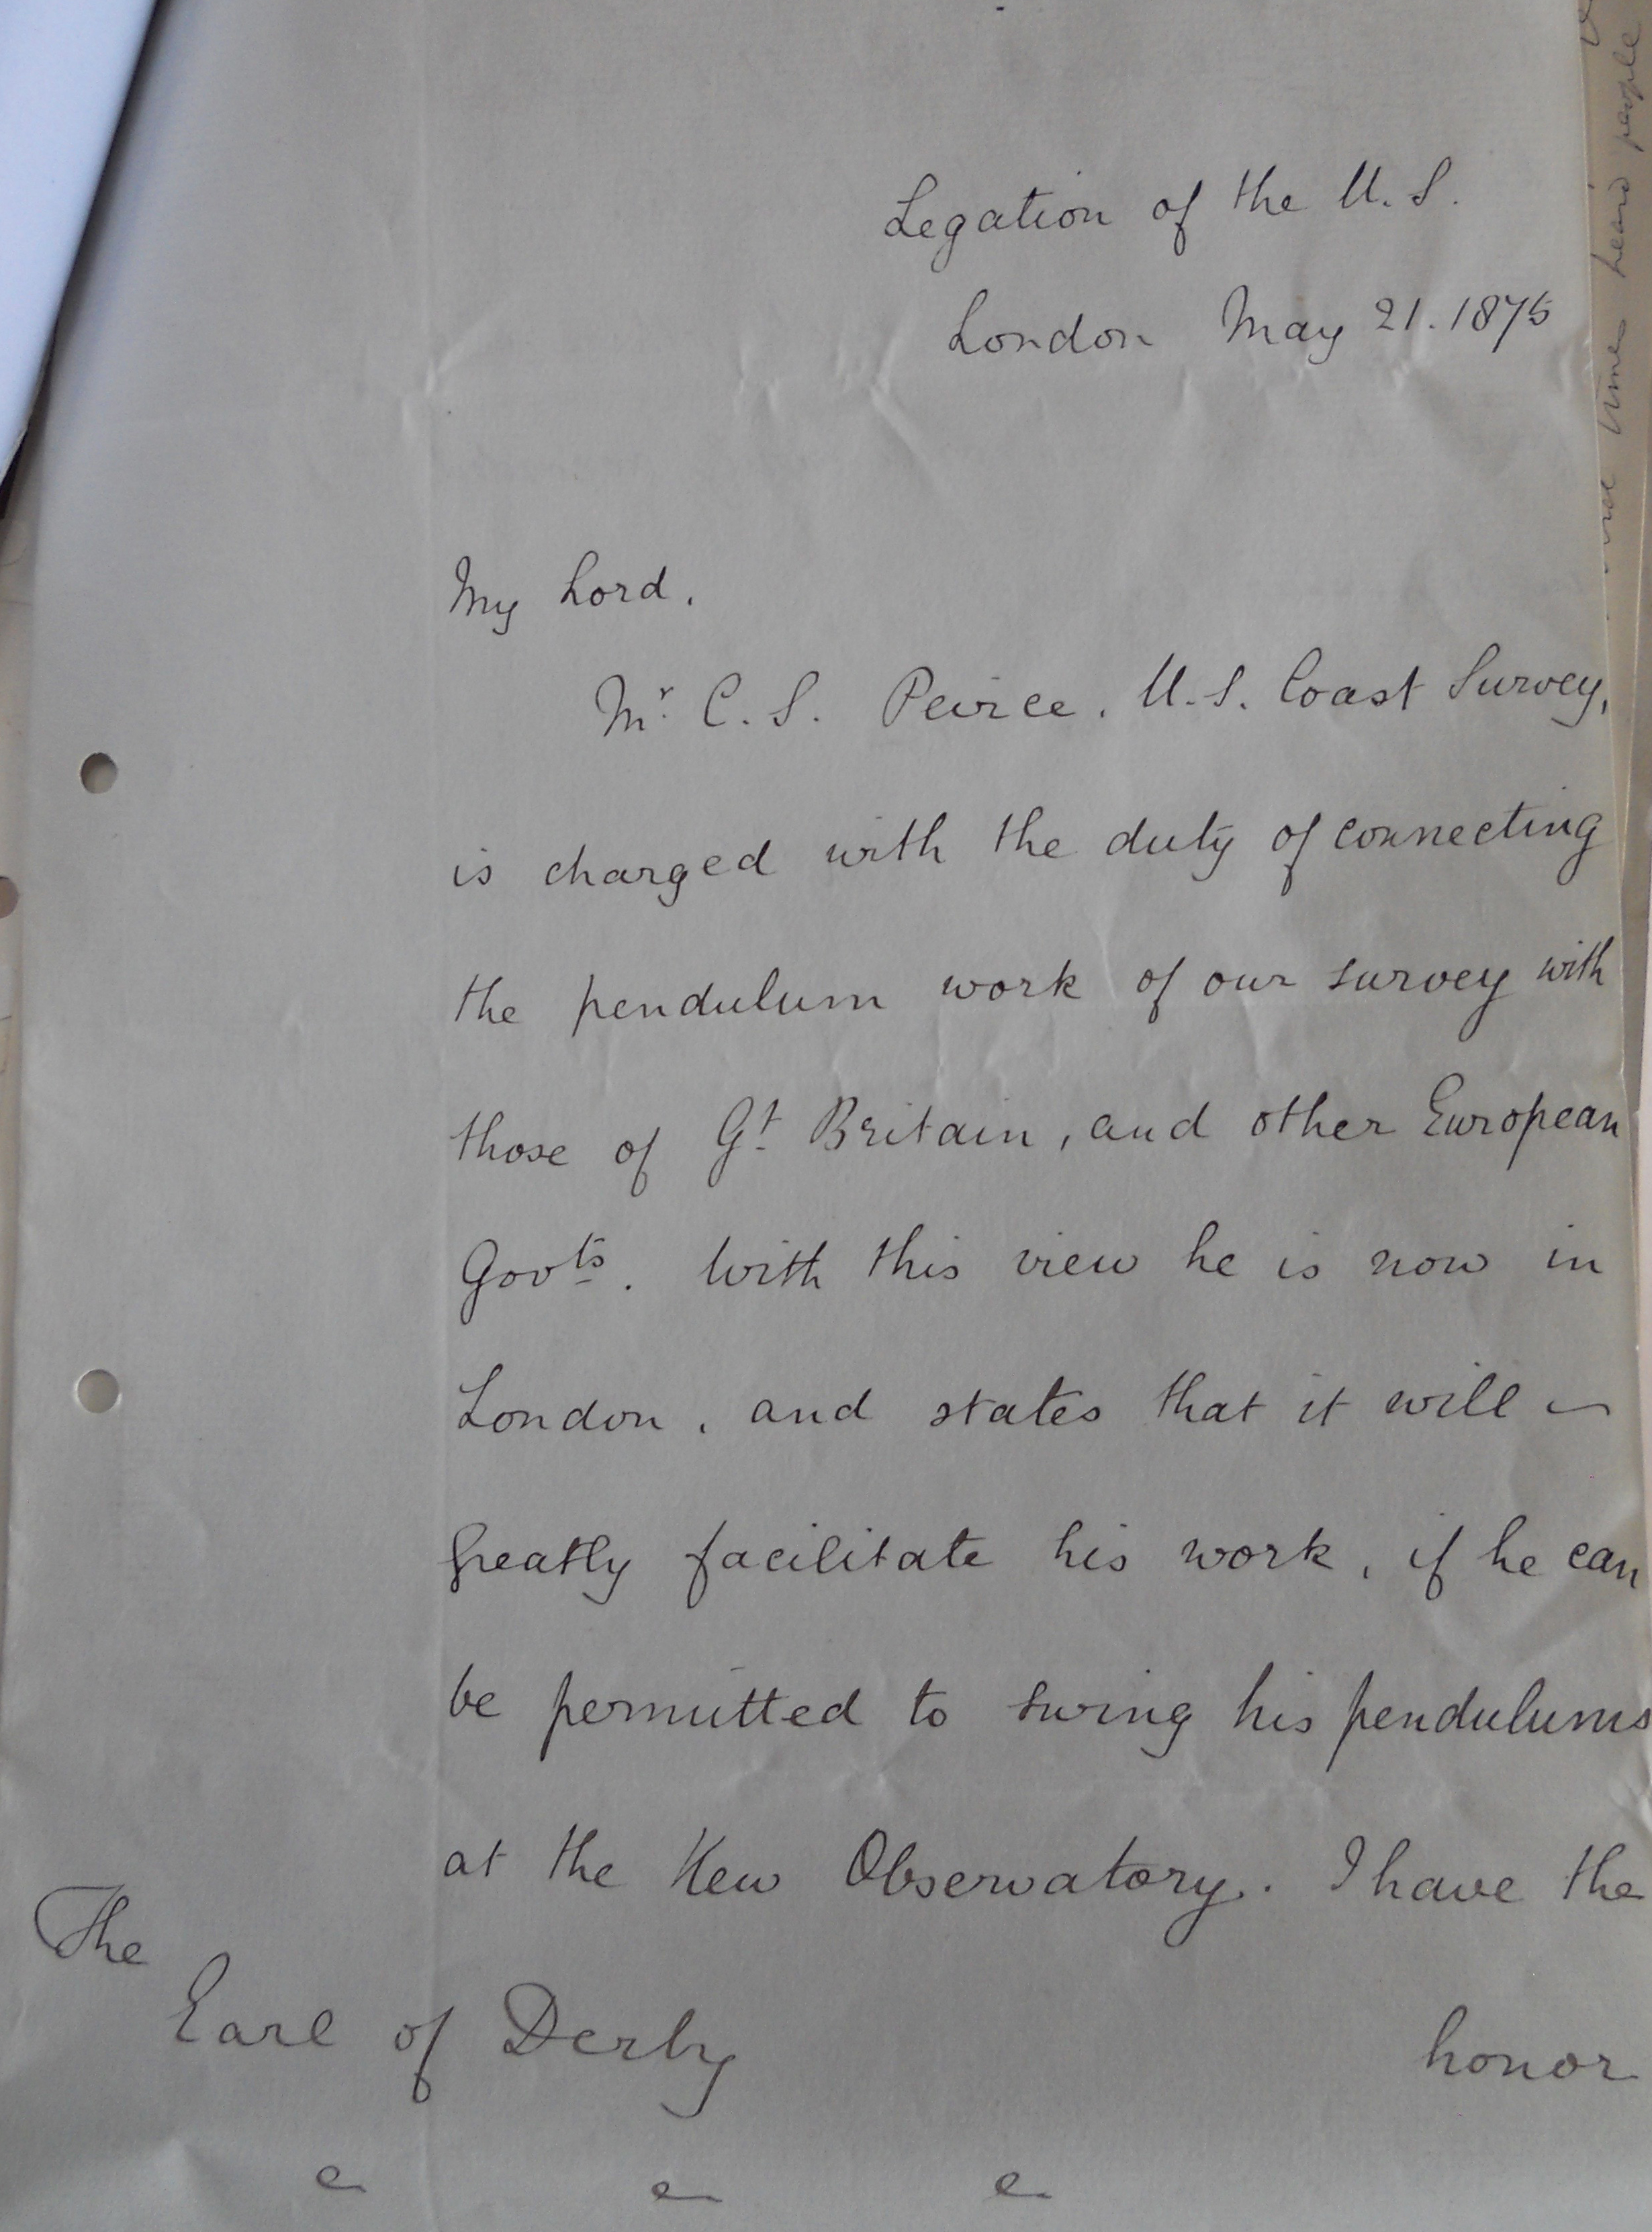 Legation of the U.S.
London May 21. 1875
My Lord.
Mr. C. S. Peirce. U.S. Coast Survey,
is charged with the duty of connecting
the pendulum work of our survey with
those of Gt. Britain, and other European
Govts. With this view he is now in
London, and states that it will
greatly facilitate his work, if he can
be permitted to swing his pendulums
at the Kew Observatory. I have the
honor
The
Earl of Derby
heard people